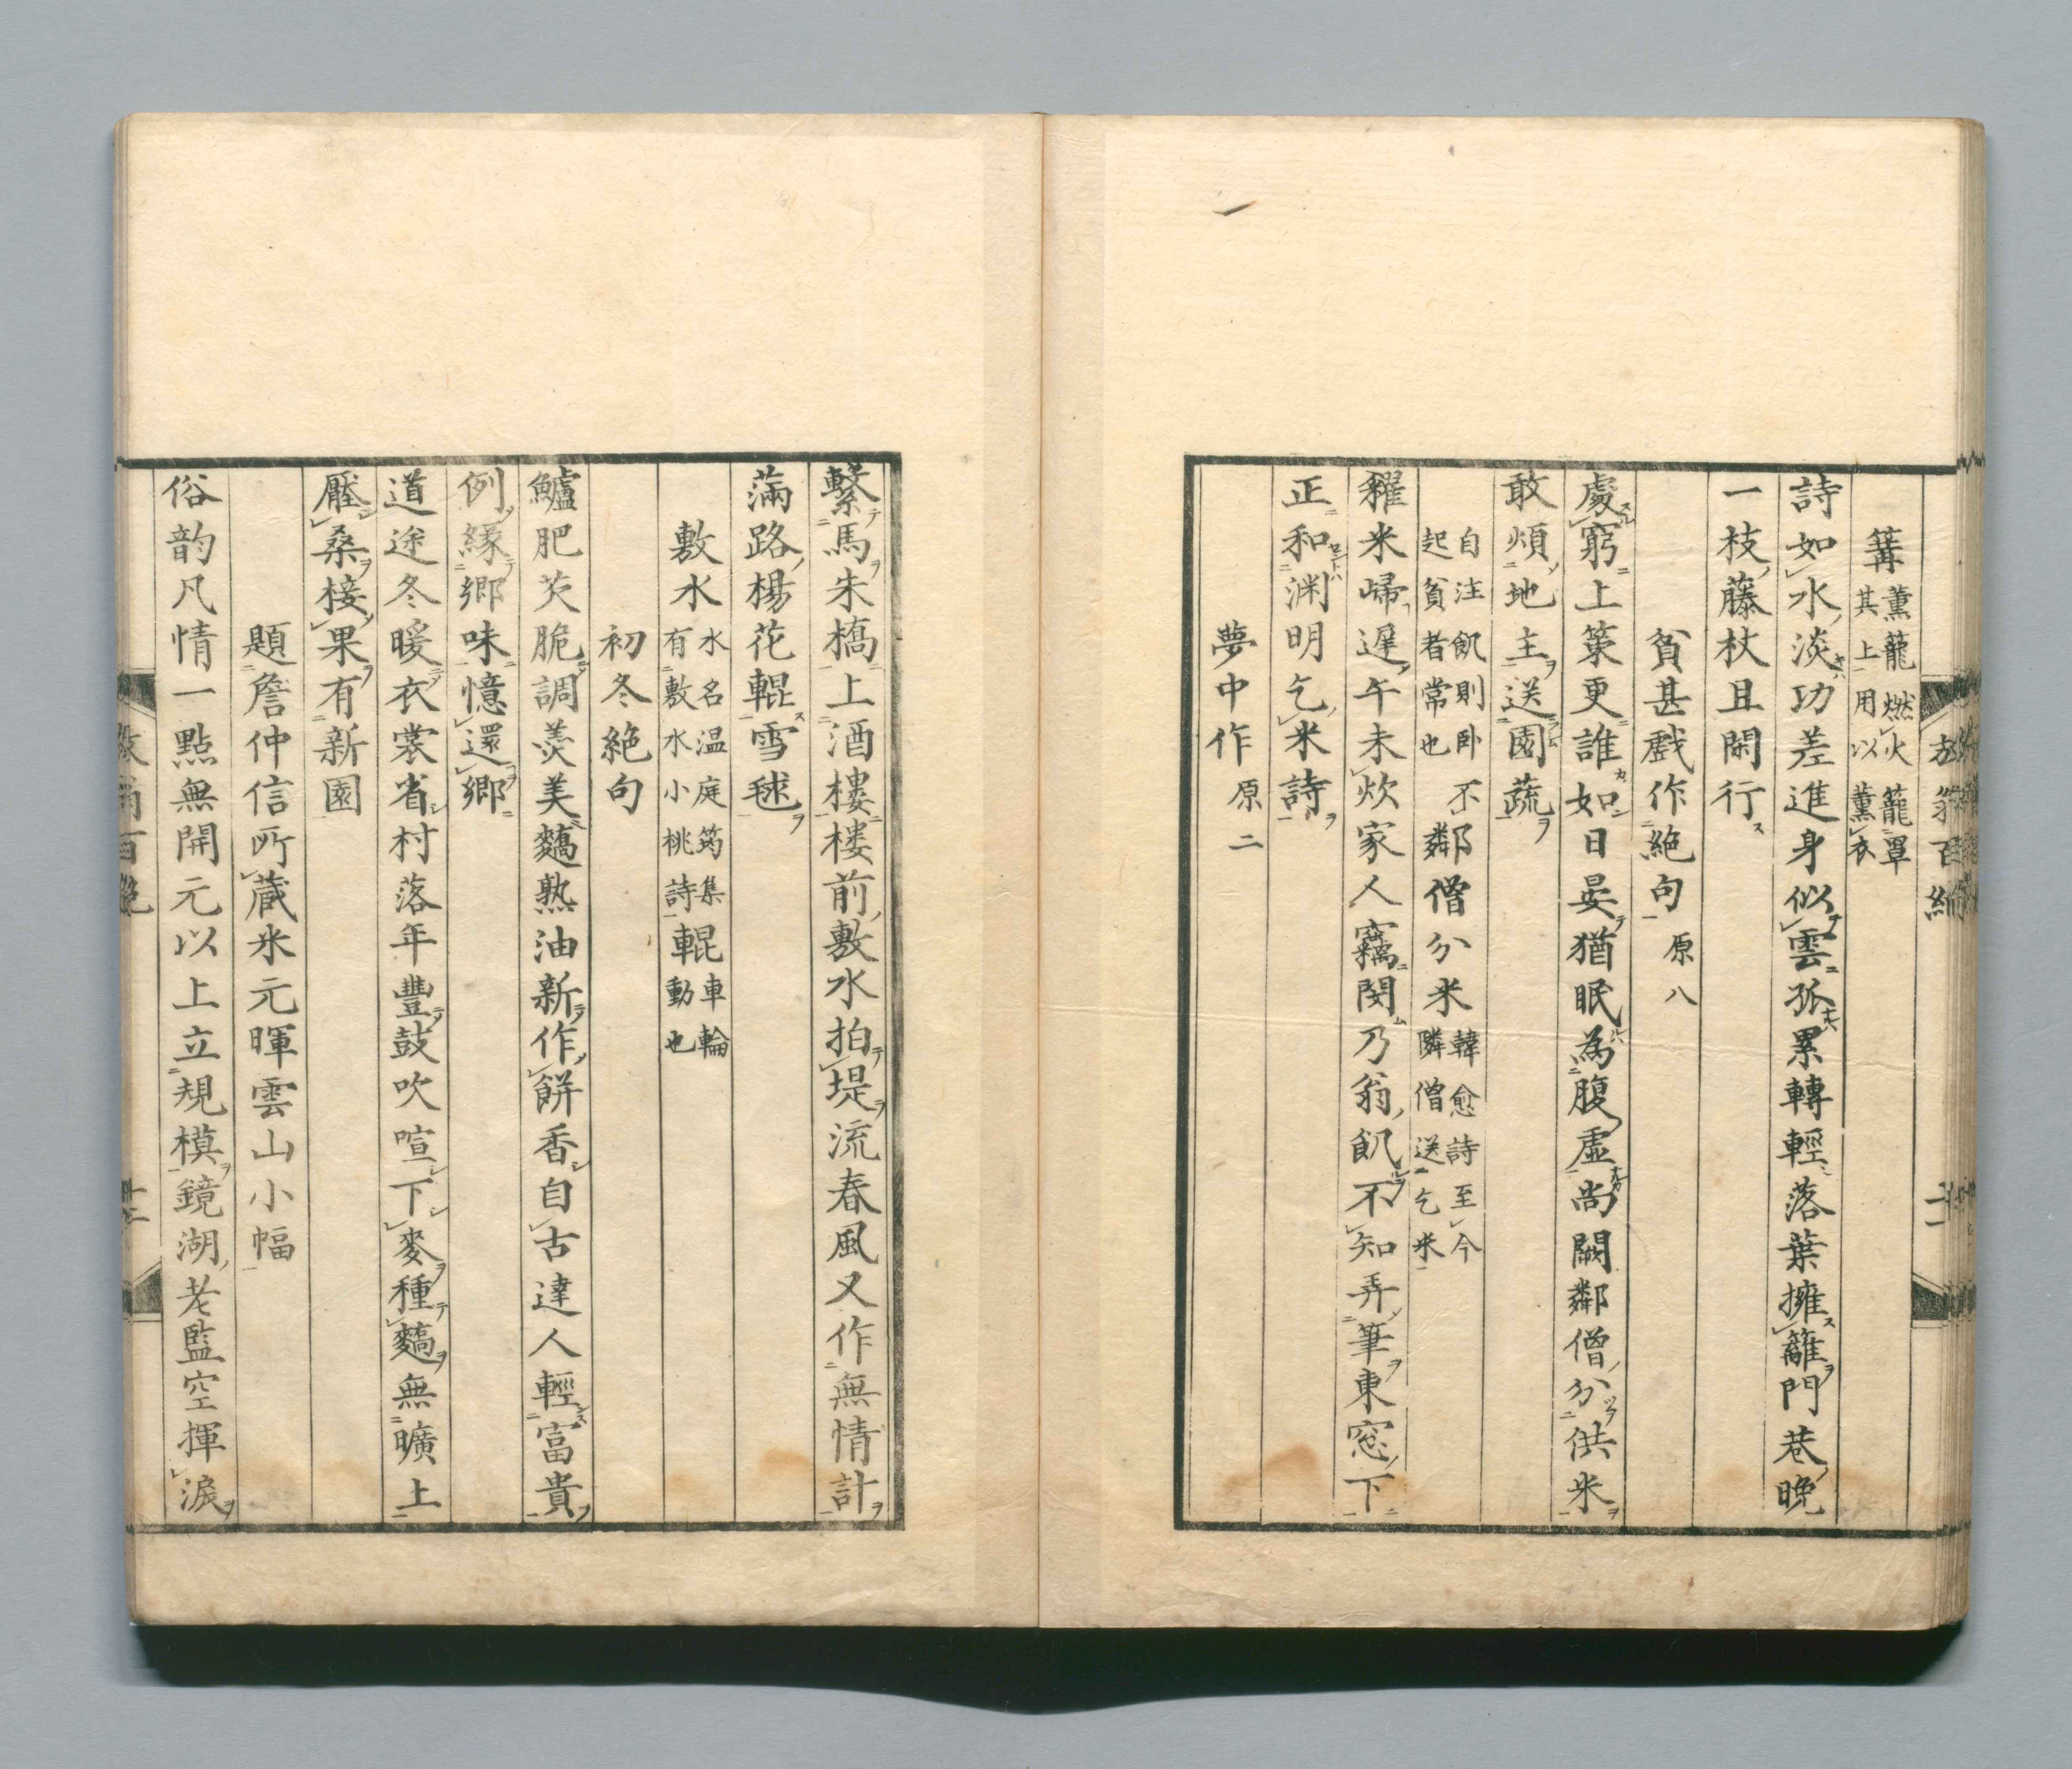 篝薫籠燃火籠罩其上用以薫衣
詩如水淡功差進身似雲孤累轉輕落葉擁籬門巷晚
一枝藤杖且閑行
貧甚戲作絶句原八
處窮上策更誰如日晏猶眠為腹虛尚闕鄰僧分供米
敢煩地主送園蔬
自注飢則卧不起貧者常也不鄰僧分米韓愈詩至今隣僧送乞米
糴米歸遲午未炊家人竊閔乃翁飢不知弄筆東窓下
正和渊明乞米詩
夢中作原二
繫馬朱橋上酒樓樓前敷水拍堤流春風又作無情計
滿路楊花輥雪毬
敷水水名温庭筠集有敷水小桃詩輥車輪動也
初冬絶句
鱸肥芡脆調羮美麵熟油新作餅香自古達人輕富貴
例緣鄉味憶還鄉
道途冬暖衣裳省村落年豐鼓吹喧下麥種麵無曠土
壓桑接果有新園
題詹仲信所藏米元暉雲山小幅
俗韵凡情一點無開元以上立規模鏡湖老監空揮淚